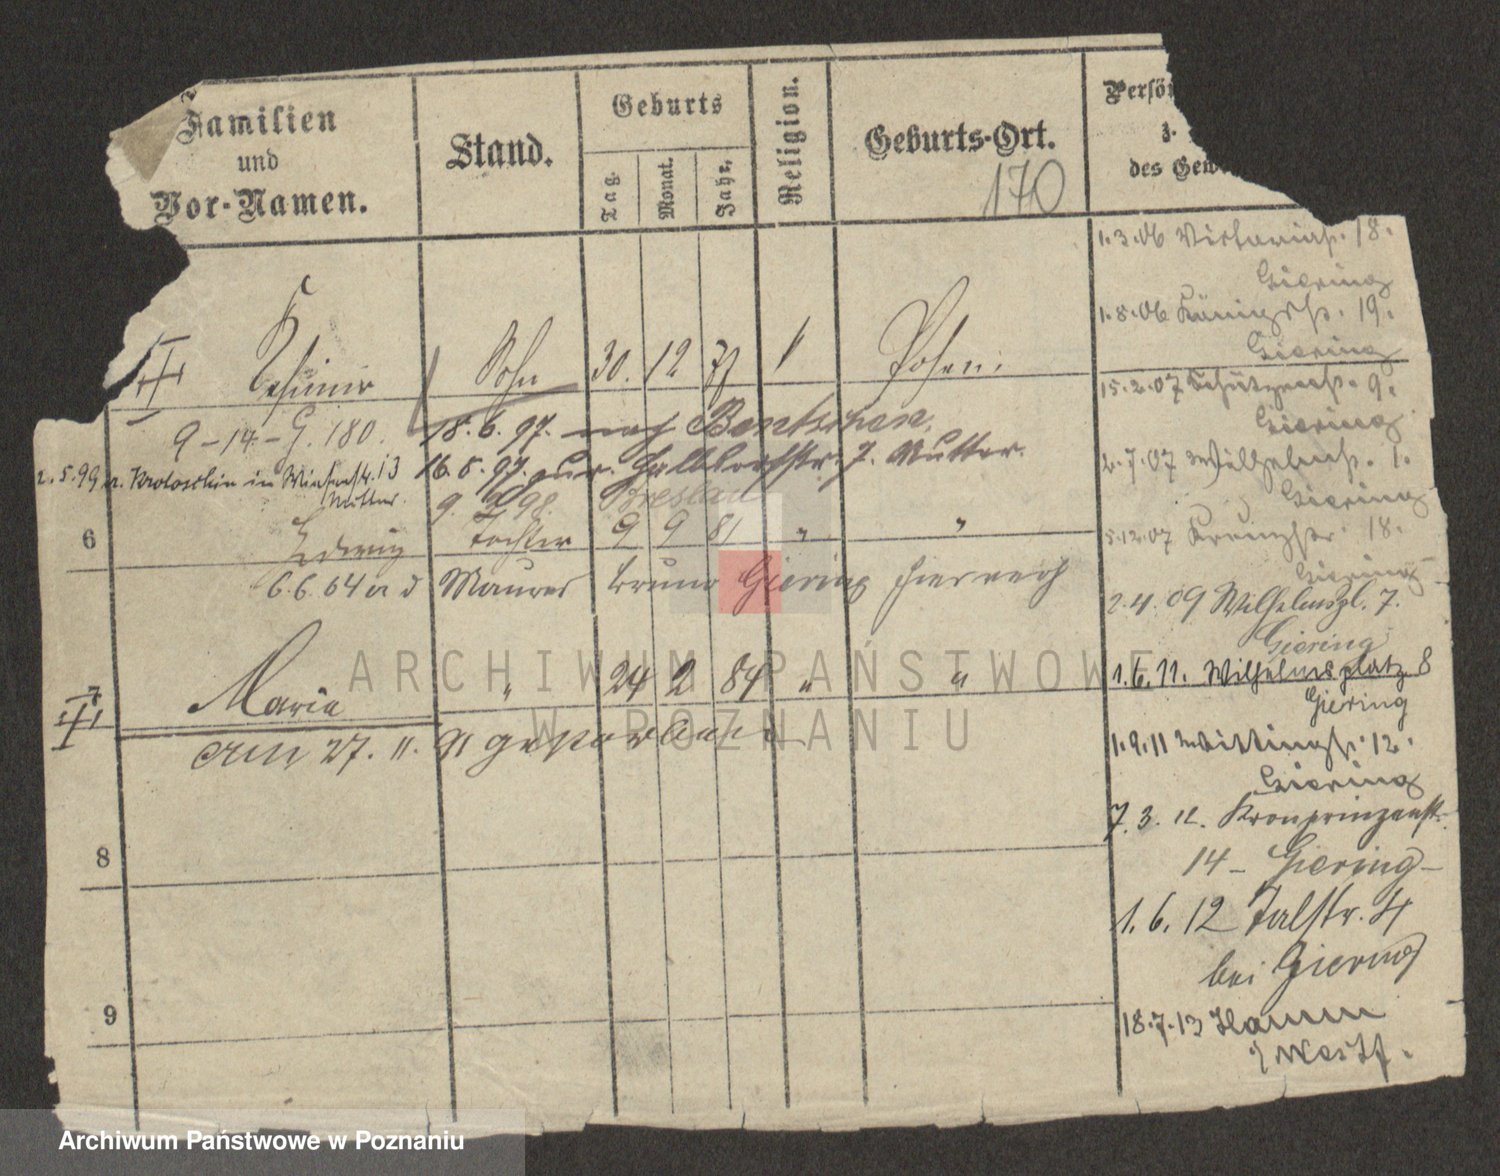 Familien
und
Vor-Namen.
Stand.
Geburts
Tag.
Monat.
Jahr.
Religion.
Geburts-Ort.
170
Persön
z.
des Gew
Casimir
Sohn
30. 12 7
Posen.
9-14-G. 180.
18. 6. 97. nach Bentschen.
2. 5. 99 n. Krotoschin in
13
16. 8. 97. zur. Halbdorfstr. 7. Mutter.
Mutter
9. 2 98. Breslau
6
Hedwig
Tochter
9 9 81 " "
6. 6. 04 a d Maurer Bruno Giering hier verh
7
Maria
" 24 2 84 " "
am 27. 11. 91 gestorben
8
9
1.3.06 Victoriastr. 18.
Giering
1.8.06 Königstr. 19.
Giering
15.2.07 Schützenstr. 9.
Giering
2.7.07 Wilhelmstr. 1.
Giering
5.12.07 Kreuzstr. 18.
Giering
2.4.09 Wilhelmspl. 7.
Giering
1.6.11. Wilhelmsplatz 8
Giering
1.9.11 Wittingstr. 12.
Giering
7.3.12. Kronprinzenstr.
14- Giering-
1.6.12 Talstr. 4
bei Giering
18.7.13 Hamm
i/Westf.
ARCHIWUM PAŃSTWOWE
W POZNANIU
Archiwum Państwowe w Poznaniu